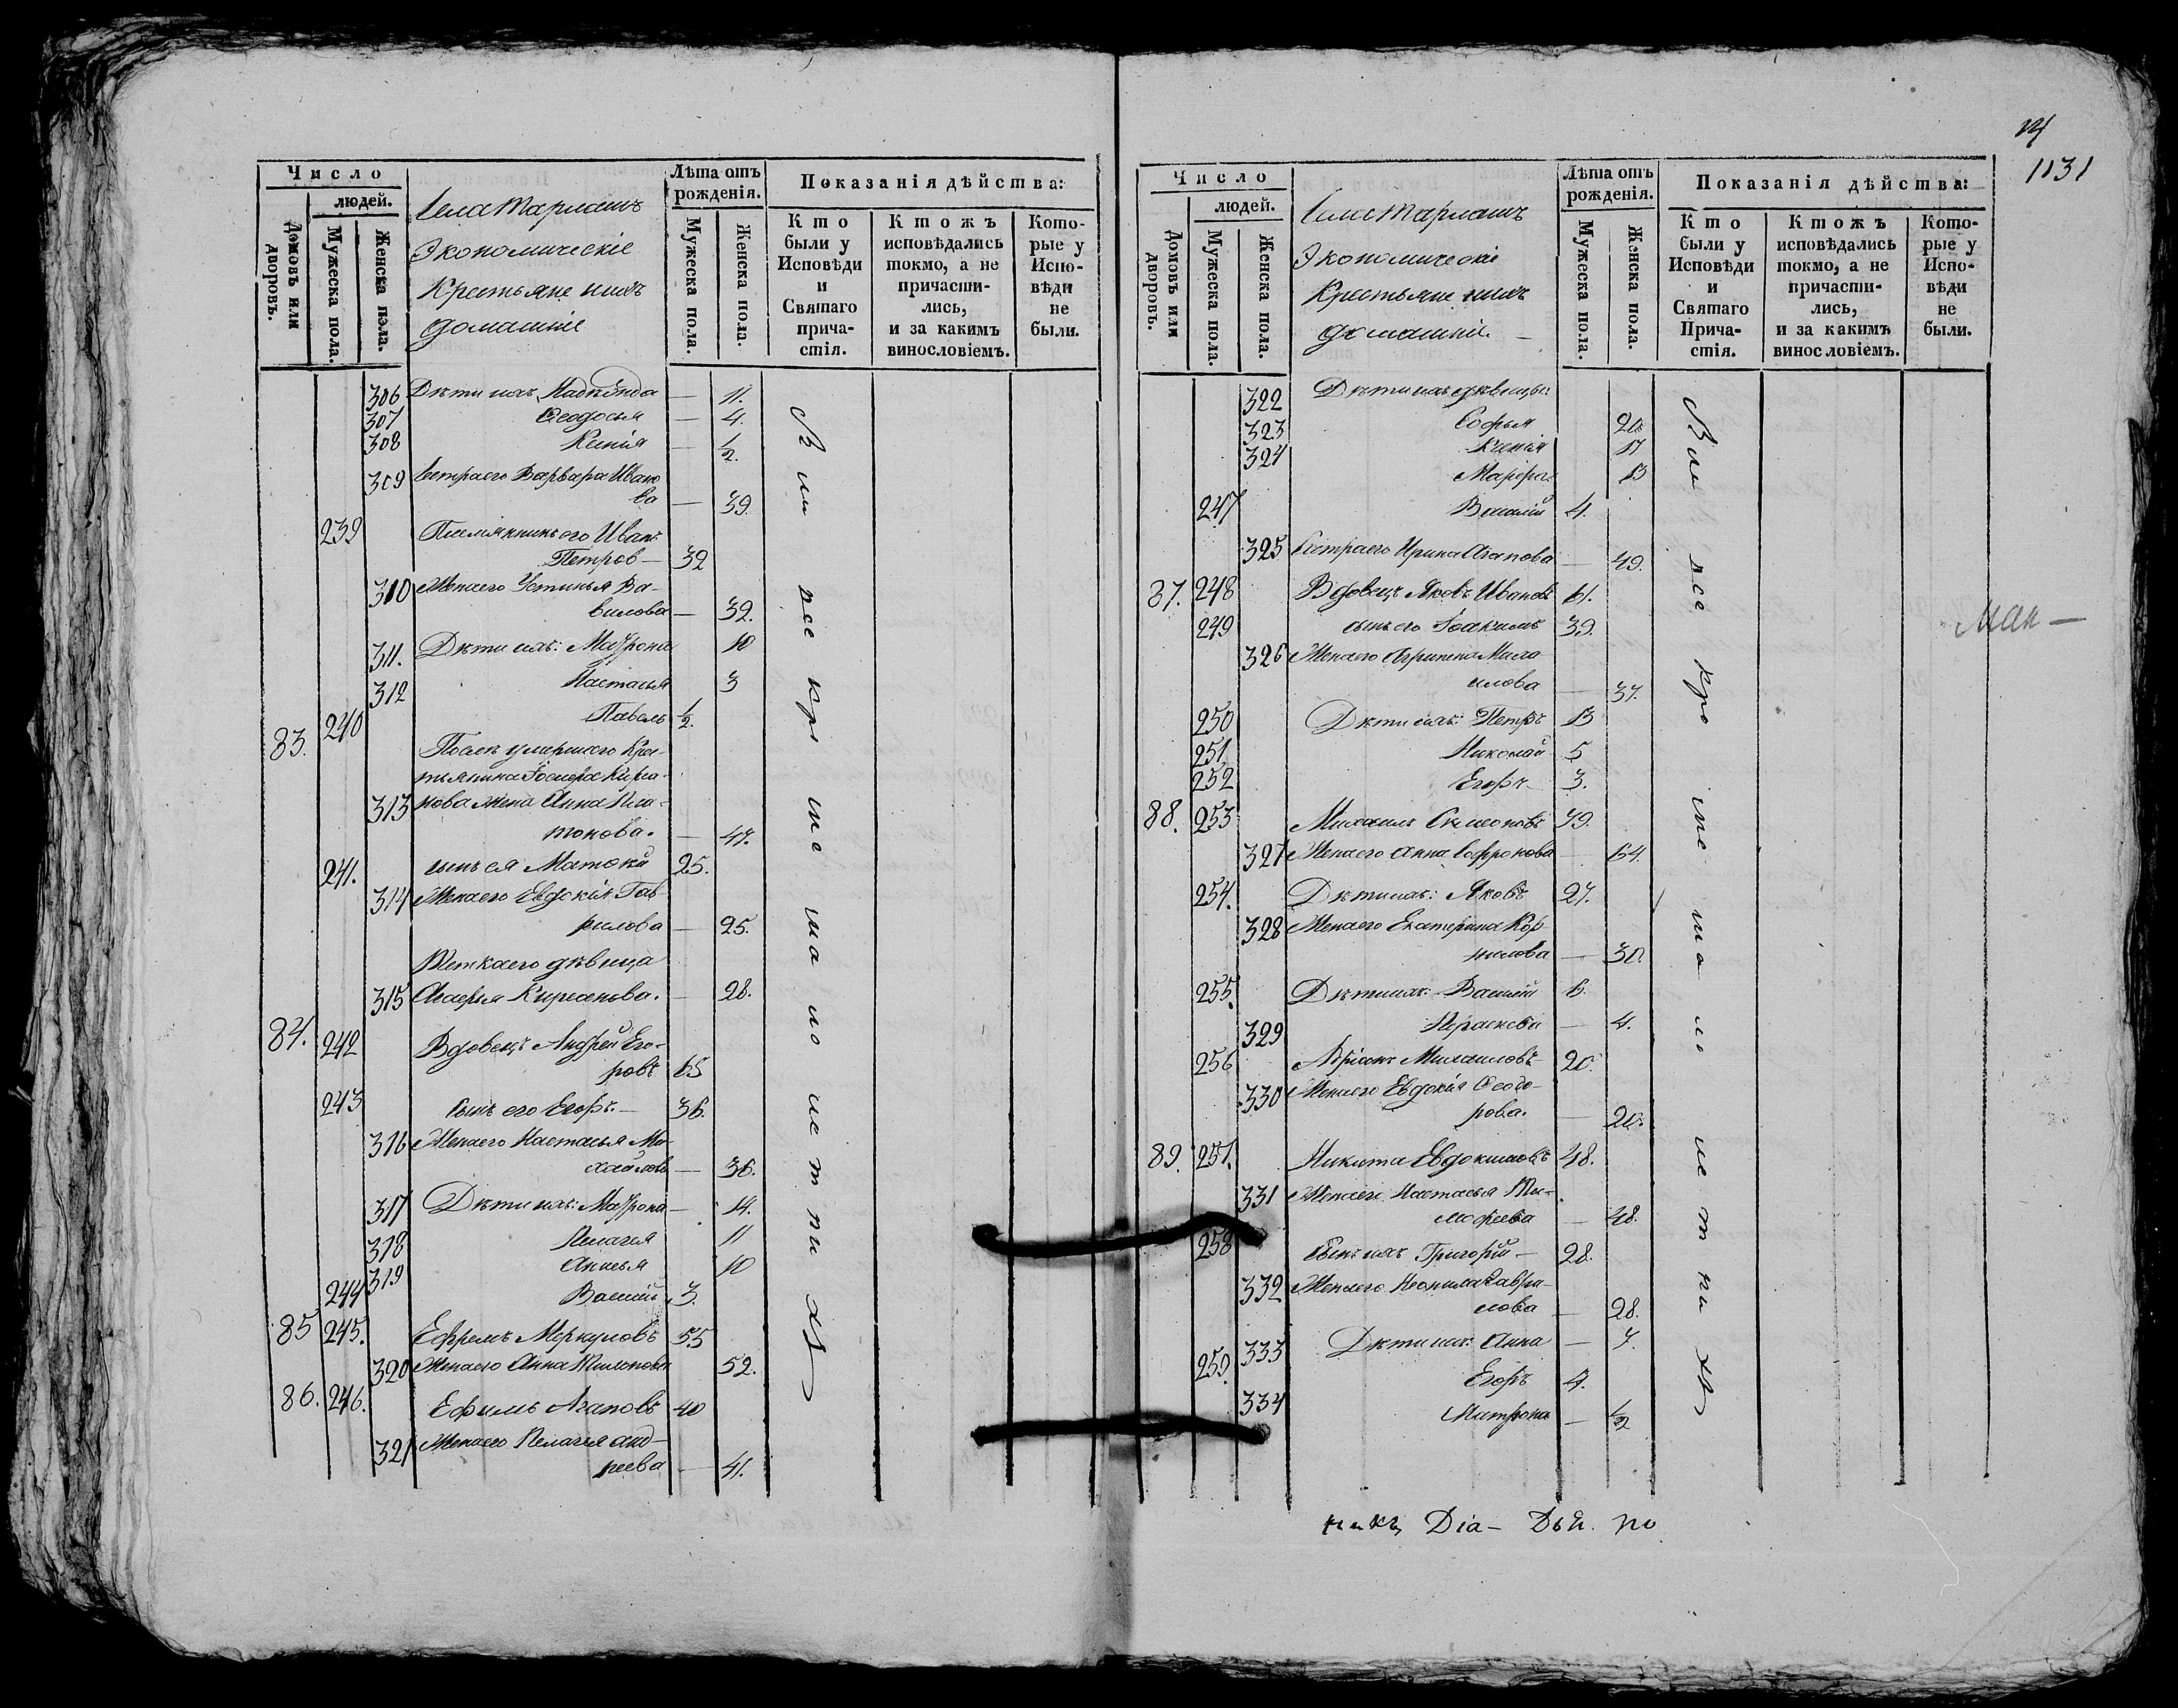 Число
людей.
Домовъ или дворовъ.
Мужеска пола.
Женска пола.
Села Тарлашъ
Экономическіе
Крестьяне и ихъ
домашніе
Лѣта отъ рожденія.
Мужеска пола.
Женска пола.
Показанія дѣйства:
Кто были у Исповѣди и Святаго прича-стія.
Ктожъ исповѣдались токмо, а не причасти-лись, и за какимъ винословіемъ.
Кото-рые у Испо-вѣди не были.
306 Дѣти ихъ, Надежда — 11.
307 Ѳеодосья — 4.
308 Ксенія — 1/2.
309 Сестра его Варвара Ивано
ва — 39.
239 Племянникъ его Иванъ
Петровъ — 32
310 Жена его Устинья Ва-
вилова — 32.
311. Дѣти ихъ: Матрона 10
312 Настасья 3
240 Павелъ 1/2.
83. Послѣ умершаго Крес-
тьянина Іосифа Кирса-
313 нова жена Анна Пла-
тонова. — 47.
241. сынъ ея Матвей 25.
314 Жена его Евдокія Гав-
рилова — 25.
Тетка его дѣвица
315 Агафья Кирсанова. — 28.
84. 242 Вдовецъ Андрей Его-
ровъ 65
243 Сынъ его Егоръ. — 36.
316 Жена его Настасья Ми-
хайлова — 36.
317 Дѣти ихъ: Матрона — 14.
318 Пелагея 11
319 Анисья 10
244 Василій 3.
85 245. Ефремъ Меркуловъ 55
320 Жена его Анна 52.
86. 246. Ефимъ Агаповъ 40
321 Жена его Пелагея Анд-
реева — 41.
Число
людей.
Домовъ или дворовъ.
Мужеска пола.
Женска пола.
Села Тарлашъ
Экономическіе
Крестьяне и ихъ
домашніе. —
Лѣта отъ рожденія.
Мужеска пола.
Женска пола.
Показанія дѣйства:
Кто были у Исповѣди и Святаго Прича-стія.
Ктожъ исповѣдались токмо, а не причасти-лись, и за какимъ винословіемъ.
Кото-рые у Испо-вѣди не были.
1131
322 Дѣти ихъ дѣвицы:
323 Софья 20
324 Ксенія 17
Марфа 13
247 Василій 4.
325 Сестра его Ирина Агапова — 49.
87. 248 Вдовецъ Яковъ Ивановъ 61.
249 сынъ его Іоакимъ 39.
326 Жена его Агрипена
— 37.
250 Дѣти ихъ: Петръ 13
251. Николай 5
252 Егоръ 3.
88. 253 Михаилъ Симеоновъ 79.
327 Жена его Анна Софронова — 64.
254. Дѣти ихъ: Яковъ 27.
328 Жена его Екатерина Кор
нилова — 30.
255. Дѣти ихъ: Василій 6.
329 Параскева — 4.
256 Адріанъ Михаиловъ 20.
330 Жена его Евдокія Ѳеодо-
рова. — 20.
89. 257. Никита Евдокимовъ 48.
331 Жена его Настасья Ти-
мофеева — 48.
258 Сынъ ихъ Григорій — 28.
332 Жена его Неонила Гаври-
лова — 28.
333 Дѣти ихъ: Анна — 7.
259. Егоръ 4.
334 Матрона — 1/2
Діа-